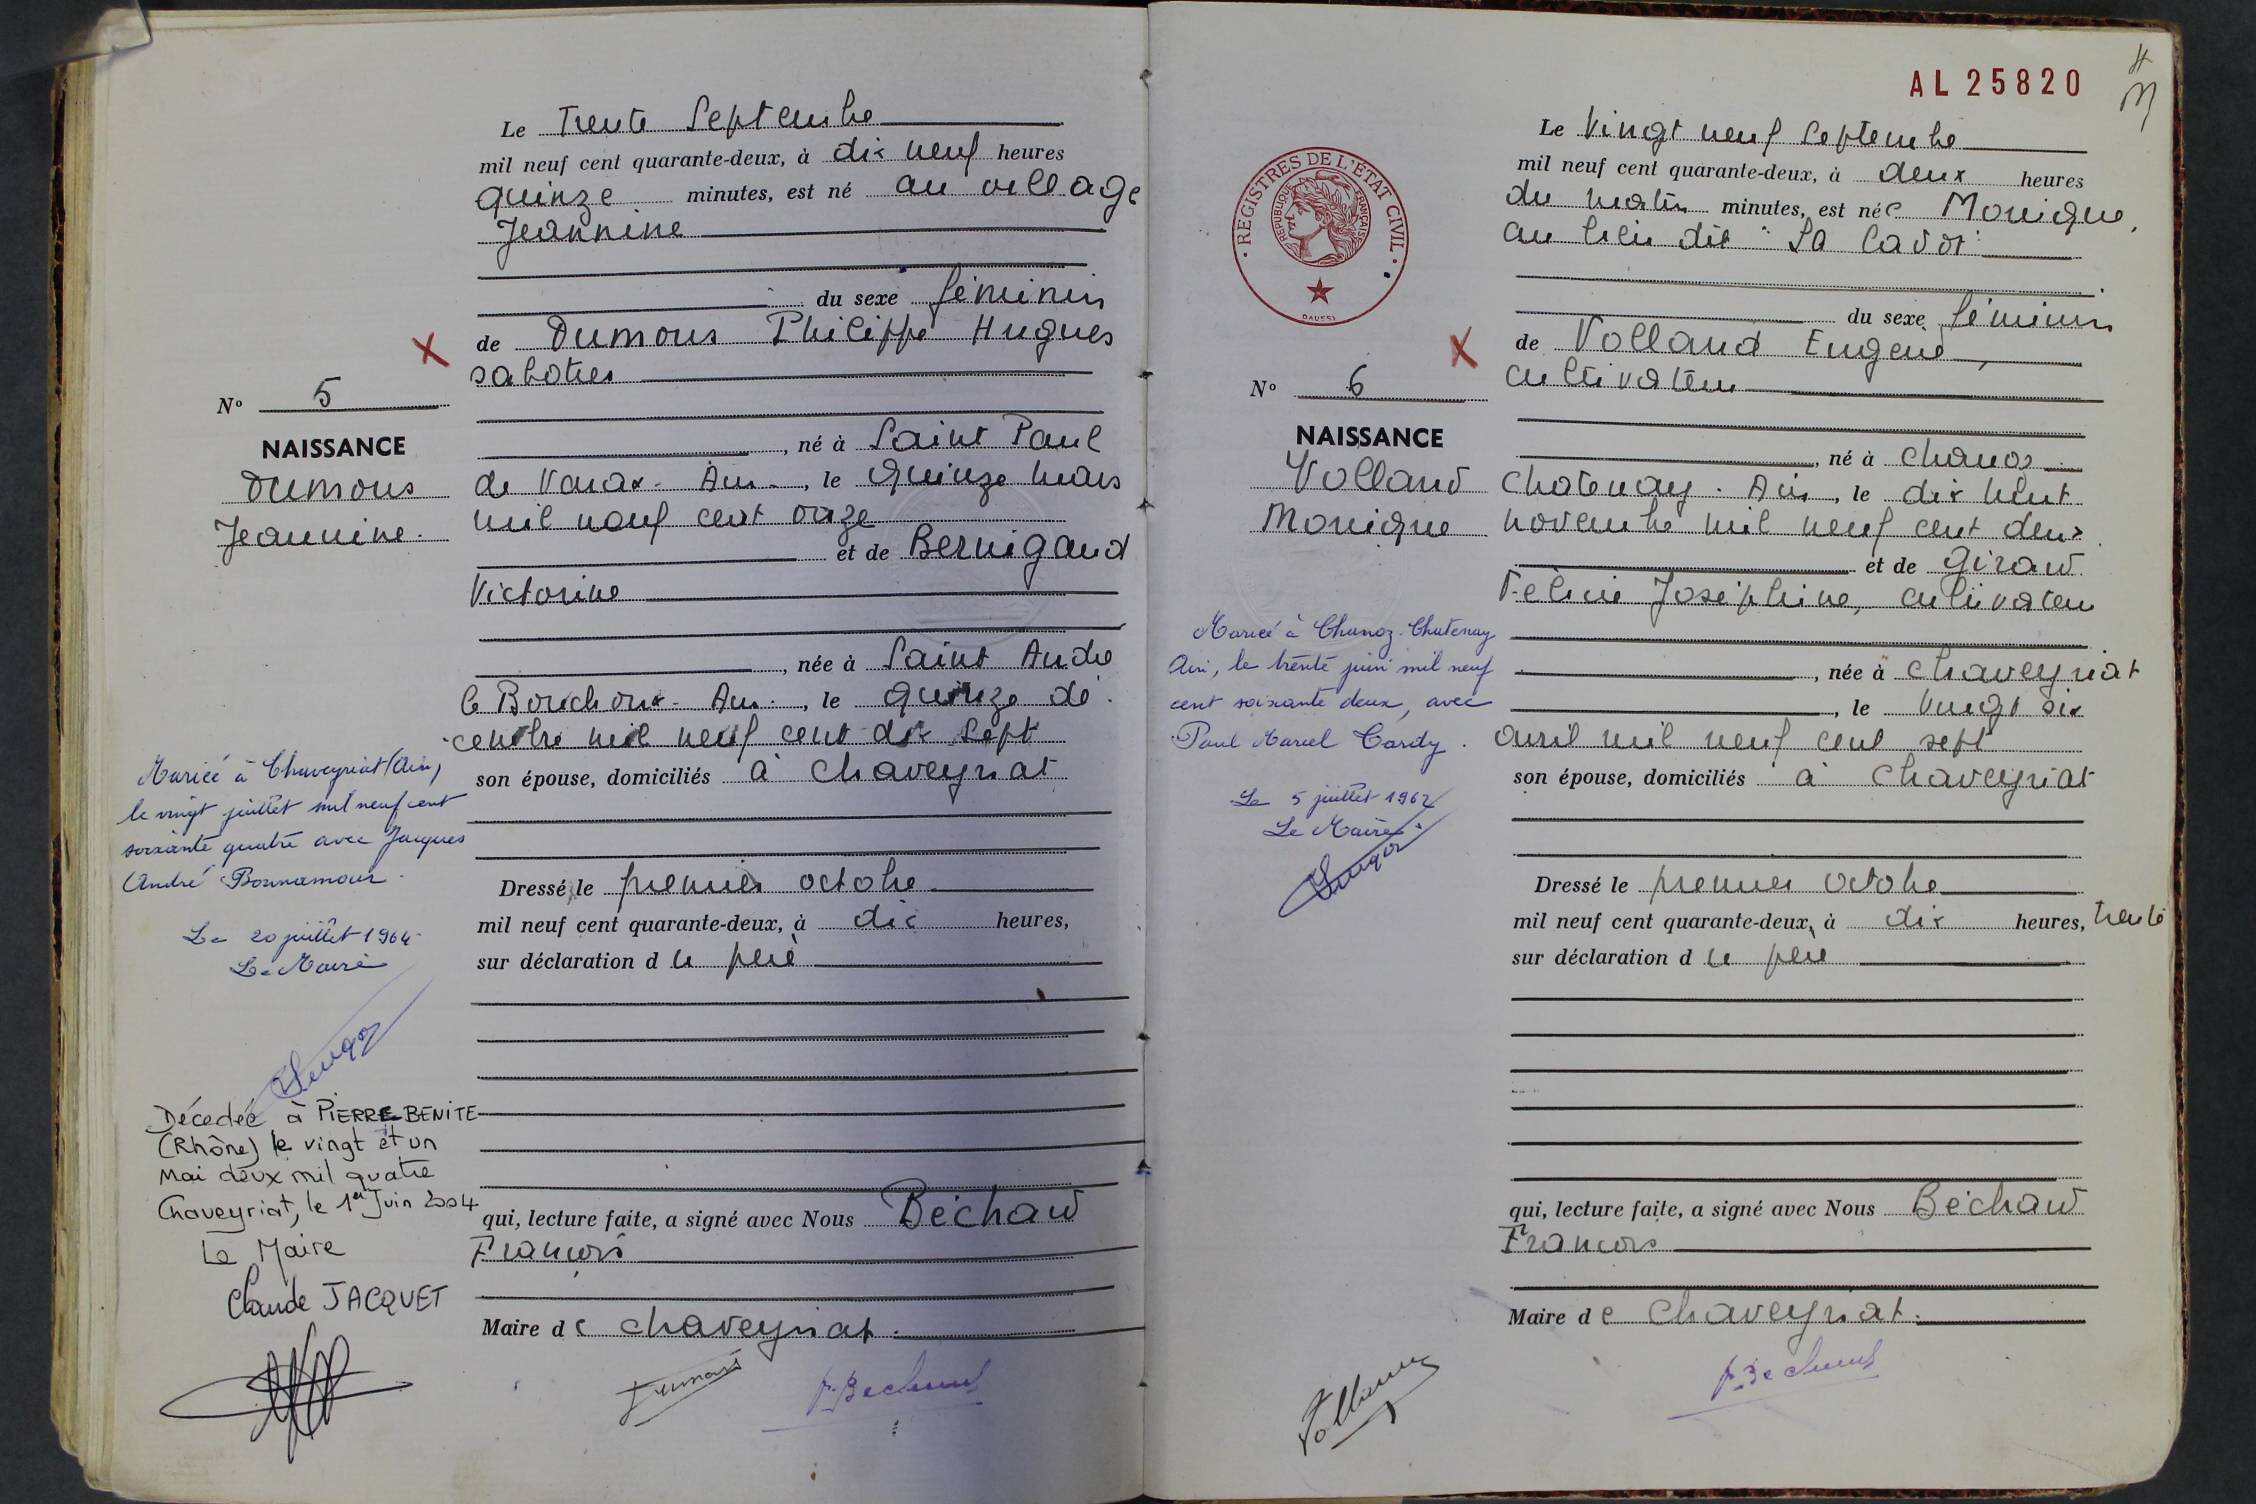 Le Trente Septembre
mil neuf cent quarante-deux, à dix neuf heures
quinze minutes, est né au village
Jeannine
du sexe féminin
de Dumons Philippe Hugues
sabotier
N° 5
NAISSANCE
Dumons
Jeannine.
, né à Saint Paul
de Varax - Ain - , le quinze mars
mil neuf cent onze
et de Bernigaud
Victorine
, née à Saint André
le Bouchoux - Ain - , le quinze dé
cembre mil neuf cent dix sept
son épouse, domiciliés à Chaveyriat
Dressé le premier octobre
mil neuf cent quarante-deux, à dix heures,
sur déclaration du père
qui, lecture faite, a signé avec Nous Béchaud
François
Maire de Chaveyriat.
Dumons
F. Bechaud
Mariée à Chaveyriat (Ain)
le vingt juillet mil neuf cent
soixante quatre avec Jacques
André Bonnamour.
Le 20 juillet 1964.
Le Maire
Décédée à PIERRE-BENITE
(Rhône) le vingt et un
Mai deux mil quatre
Chaveyriat, le 1er Juin 2004
Le Maire
Claude JACQUET
AL 25820
REGISTRES DE L'ÉTAT CIVIL
RÉPUBLIQUE FRANÇAISE
DAUSSY
Le Vingt neuf Septembre
mil neuf cent quarante-deux, à deux heures
du matin minutes, est née Monique,
au lieu dit "La Cadot"
du sexe féminin
de Volland Eugène,
cultivateur
N° 6
NAISSANCE
Volland
Monique
, né à Chanoz
Chatenay - Ain , le dix huit
novembre mil neuf cent deux
et de Giraud
Félicie Joséphine, cultivateur
, née à Chaveyriat
, le vingt six
avril mil neuf cent sept
son épouse, domiciliés à Chaveyriat
Dressé le premier octobre
mil neuf cent quarante-deux, à dix heures, trente
sur déclaration du père
qui, lecture faite, a signé avec Nous Béchaud
François
Maire de Chaveyriat.
Volland
F. Bechaud
Mariée à Chanoz-Chatenay
Ain, le trente juin mil neuf
cent soixante deux, avec
Paul Marcel Cardy.
Le 5 juillet 1962
Le Maire.